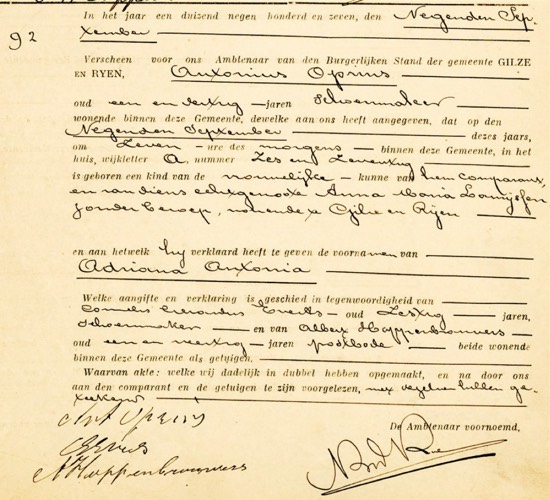 92
In het jaar een duizend negen honderd en zeven, den Negenden Sep-
tember
Verscheen voor ons Ambtenaar van den Burgerlijken Stand der gemeente GILZE
EN RYEN, Antonius Oprins
oud een en dertig jaren Schoenmaker
wonende binnen deze Gemeente, dewelke aan ons heeft aangegeven, dat op den
Negenden September dezes jaars,
om Zeven ure des morgens binnen deze Gemeente, in het
huis, wijkletter A. nummer Zes en Zeventig
is geboren een kind van de kunne van hem comparant,
en van diens echtgenoote Anna Maria
zonder beroep, wonende te Gilze en Rijen
en aan hetwelk hij verklaard heeft te geven de voornamen van
Adriana Antonia
Welke aangifte en verklaring is geschied in tegenwoordigheid van
Cornelis Everts oud Zestig jaren,
Schoenmaker en van Albert Hoppenbrouwers
oud een en veertig jaren postbode beide wonende
binnen deze Gemeente als getuigen.
Waarvan akte: welke wij dadelijk in dubbel hebben opgemaakt, en na door ons
aan den comparant en de getuigen te zijn voorgelezen, met dezelven hebben ge-
teekend
De Ambtenaar voornoemd,
Ant Oprins
Everts
A Hoppenbrouwers